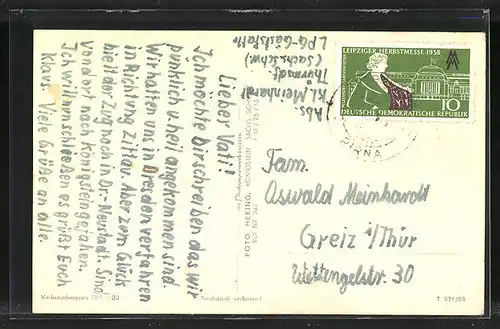 Lieber Vati!
Ich möchte Dir schreiben das wir
pünklich u. heil angekommen sind
Wir hatten uns in Dresden verfahren
in Richtung Zittau. Aber zum Glück
hielt der Zug noch in Dr.-Neustadt. Sind
von dort nach Königstein gefahren.
Ich will nun schließen es grüßt Euch
Klaus. Viele Grüße an alle.
Abs.
Kl. Meinhardt
Thürmsdf.
(Sächs. Schw.)
LPG-Gaststätte
LEIPZIGER HERBSTMESSE 1958
10
DEUTSCHE DEMOKRATISCHE REPUBLIK
PIRNA
Fam.
Oswald Meinhardt
Greiz i/Thür
Wettengelstr. 30
FOTO HERING, KÖNIGSTEIN
RUF NR. 242
Verbraucherpreis
Nachdruck verboten!
T 371/58